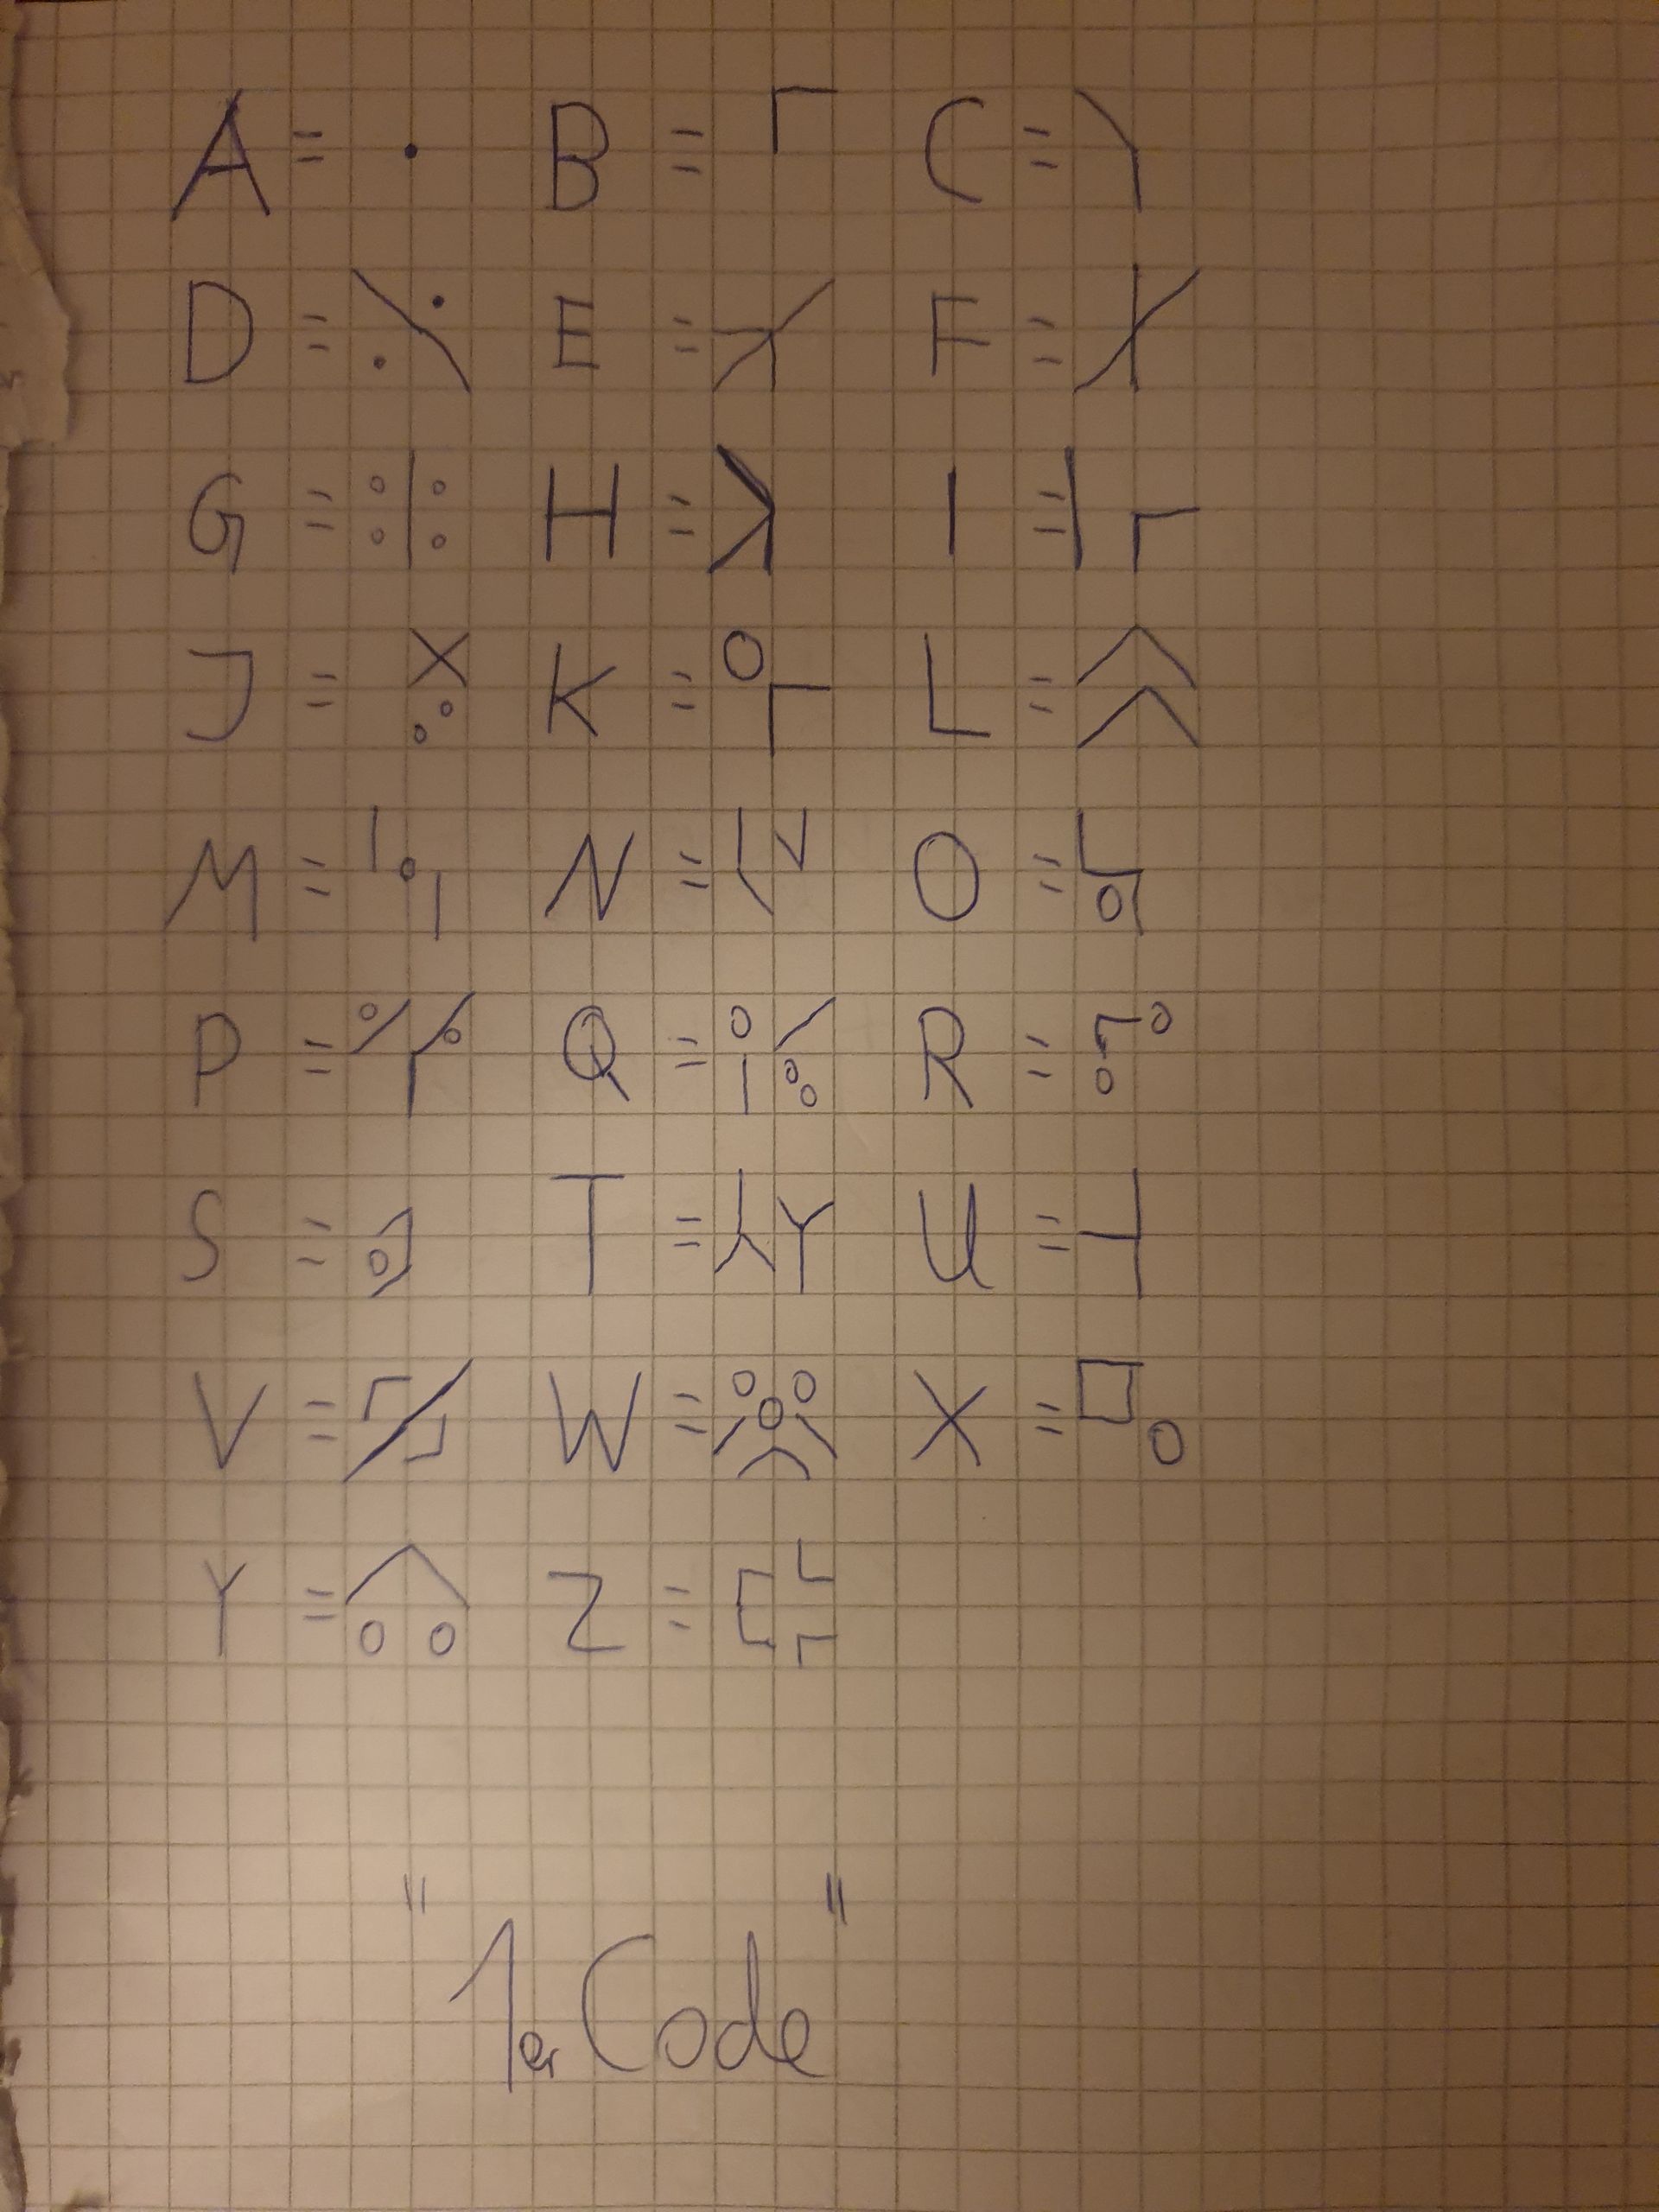 A = B = C =
D = E = F =
G = H = I =
J = K = L =
M = N = O =
P = Q = R =
S = T = U =
V = W = X =
Y = Z =
"1er Code"